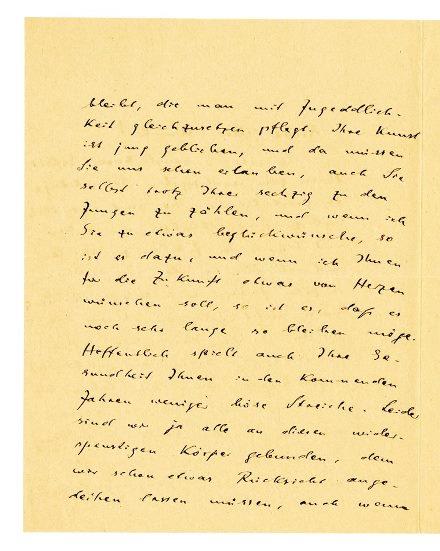 bleibt, die man mit Jugendlich-
keit gleichzusetzen pflegt. Ihre Kunst
ist jung geblieben, und da müssen
Sie uns schon erlauben, auch Sie
selbst trotz Ihrer sechzig zu den
Jungen zu zählen, und wenn ich
Sie zu etwas beglückwünsche, so
ist es dazu, und wenn ich Ihnen
für die Zukunft etwas von Herzen
wünschen soll, so ist es, daß es
noch sehr lange so bleiben möge.
Hoffentlich spielt auch Ihre Ge-
sundheit Ihnen in den kommenden
Jahren weniger böse Streiche. Leider
sind wir ja alle an diesen wider-
spenstigen Körper gebunden, dem
wir schon etwas Rücksicht ange-
deihen lassen müssen, auch wenn